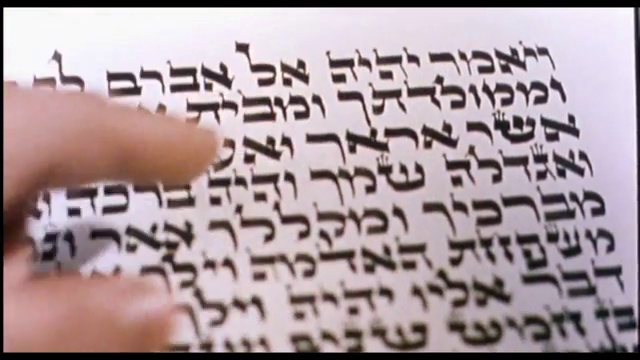 ויאמר יהוה אל אברם
וממולדתך ומבית
אשר אראך
ואגדלה שמך והיה ברכה
מברכיך ומקללך אאר
משפחת האדמה וילך
דבר אליו יהוה וילך
בן חמש שנים